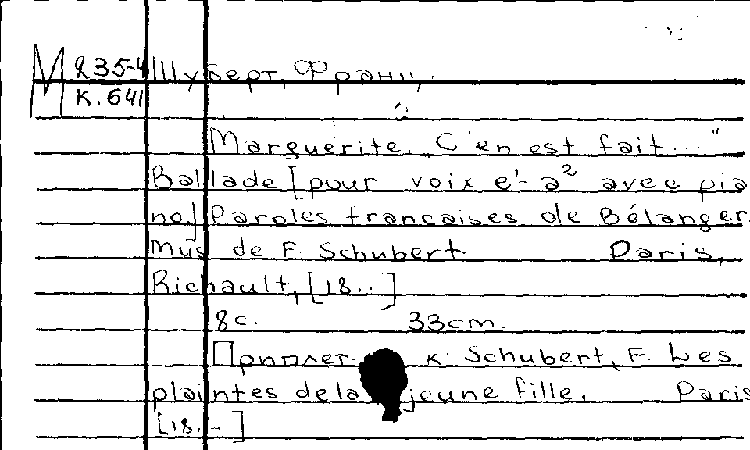 М 235-4 Шуберт, Франц.
К. 641
Marguerite. „C'en est fait..."
Ballade [pour voix e'-a² avec pia
no.] Paroles francaises de Bélanger.
Mus de F. Schubert. Paris,
Richault, [18..]
8с. 33cm.
Приплет. к. Schubert, F. Les
plaintes de la jeune fille. Paris
[18.-]